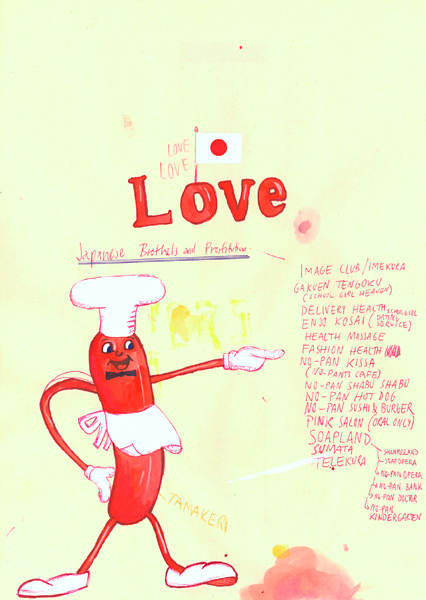 LOVE
LOVE
LOVE
Japanese Brothels and Prostitution
IMAGE CLUB/IMEKURA
GAKUEN TENGOKU
(SCHOOL GIRL HEAVEN)
DELIVERY HEALTH
ENJO KOSAI (SCHOOLGIRL DATING SERVICE)
HEALTH MASSAGE
FASHION HEALTH
NO-PAN KISSA
(NO-PANTS CAFE)
NO-PAN SHABU SHABU
NO-PAN HOT DOG
NO-PAN SUSHI & BURGER
PINK SALON (ORAL ONLY)
SOAPLAND
SUMATA
TELEKURA
SHAMPOOLAND
SOAPOPERA
NO-PAN OPERA
NO-PAN BANK
NO-PAN DOCTOR
NO-PAN
KINDERGARTEN
TAMAKERI